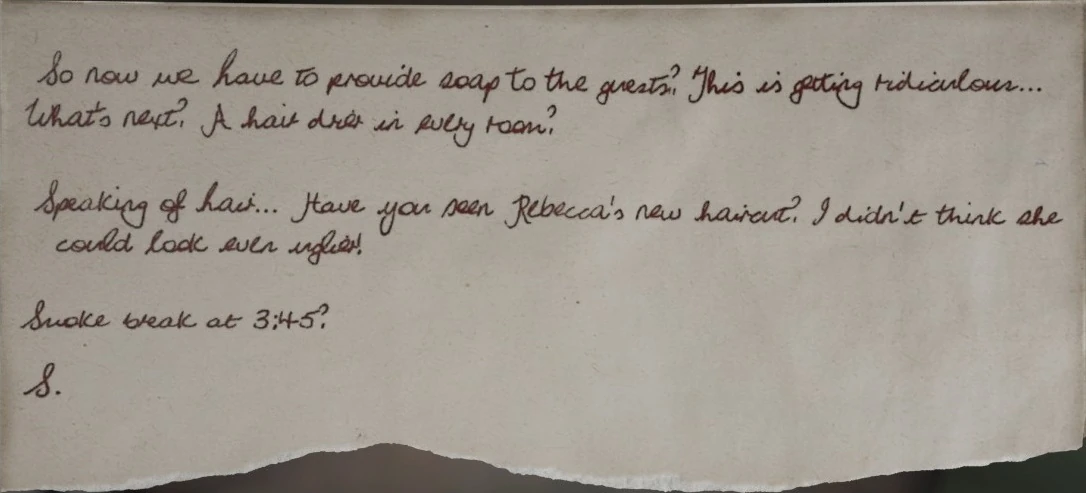 So now we have to provide soap to the guests? This is getting ridiculous...
What's next? A hair drier in every room?
Speaking of hair... Have you seen Rebecca's new haircut? I didn't think she
could look even uglier!
Smoke break at 3:45?
S.